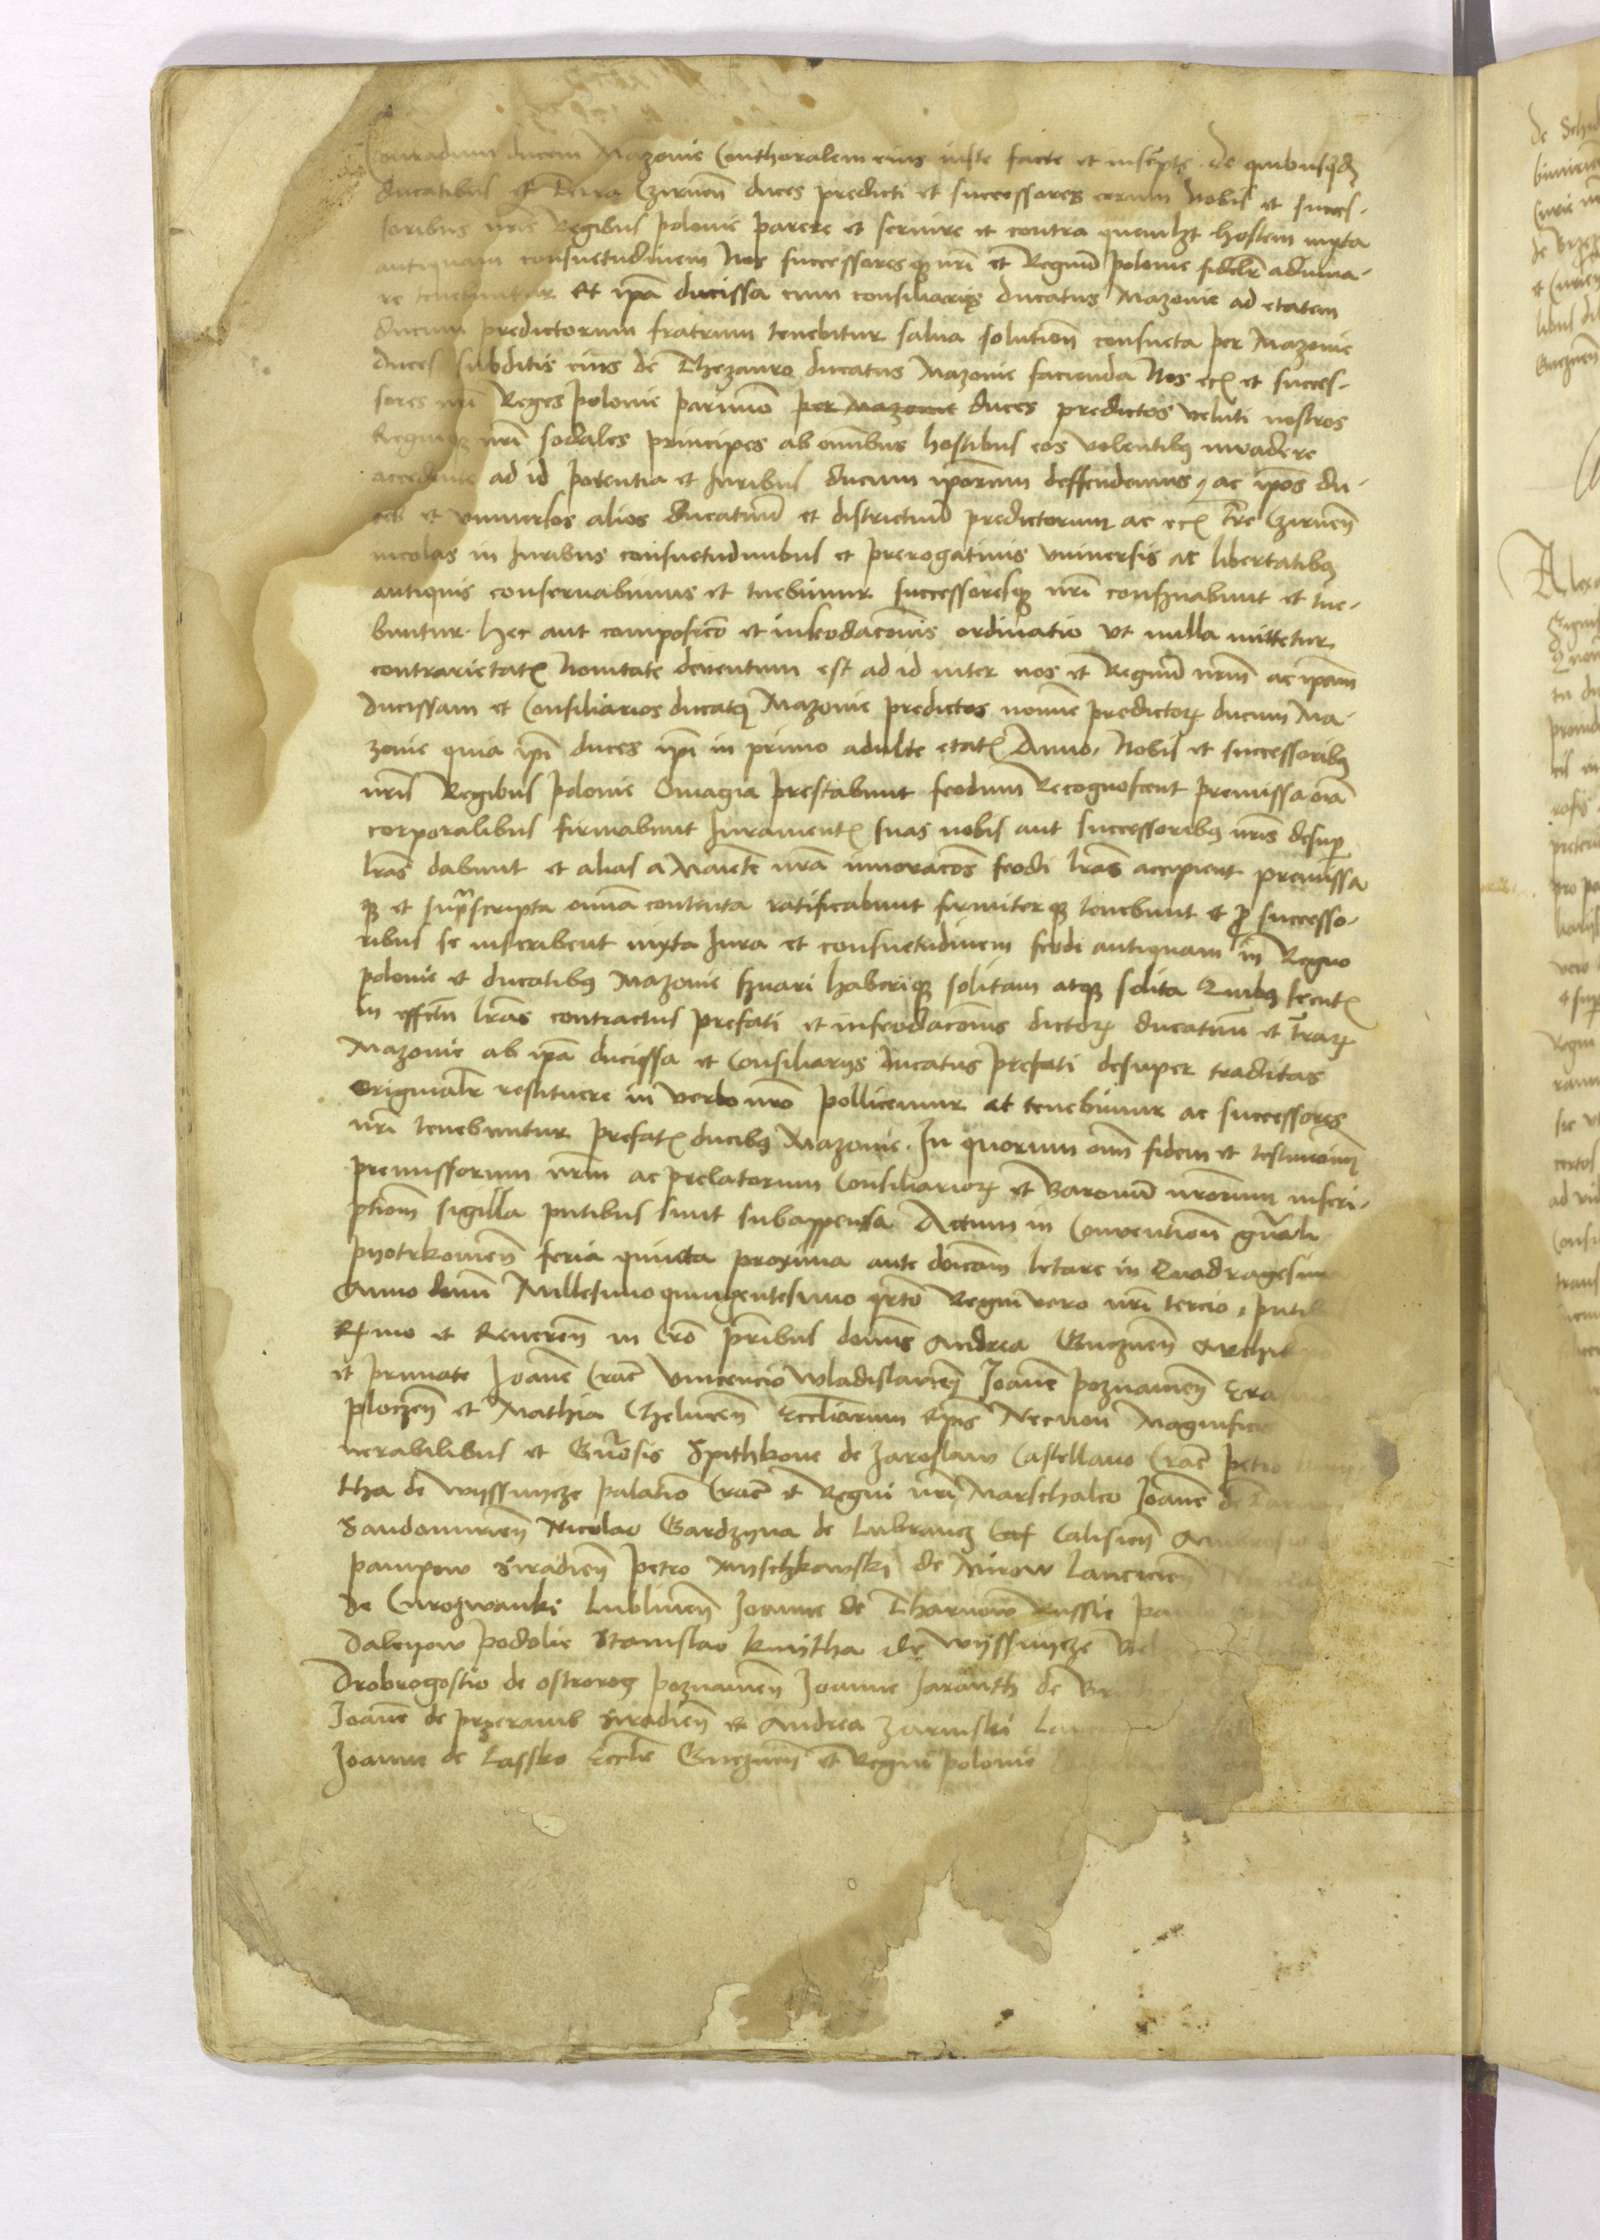 Conradum ducem Mazovie Conthoralem eius iuste facte et inscripte de quibusq̃d
ducatibus et Terra Czirneñ duces predicti et successores eorum Nobis et succes-
soribus nr̃is Regibus polonie parere et servire et contra quemlz̃t hostem iuxta
antiquam consuetudinem Nos successoresq; nr̃i et Regnũ polonie fidelr̃ adiuva-
re tenebuntur Et ip̃a ducissa cum consiliarijs ducatus Mazovie ad etatem
ducum predictorum fratrum tenebitur salva solutioñ consueta per Mazovie
duces subditis eius de Thezauro ducatus Mazovie facienda Nos ec̃ et succes-
sores nr̃i Reges polonie parimõ per Mazovie duces predictos veluti nostros
Regniq; nr̃i sodales principes ab omnibus hostibus eos volentibꝫ invadere
accedente ad id potentia et Iuribus ducum ip̃orum deffendemus, ac ip̃os du-
ces et universos alios ducatuũ et districtuũ predictorum ac ec̃ tr̃e Czirneñ
incolas in Iuribus consuetudinibus et prerogativis universis ac libertatibꝫ
antiquis conservabimus et tuebimur successoresq; nr̃i conservabunt et tue-
buntur. Hec aut composic̃o et infeodac̃onis ordinatio ut nulla mittetur
contrarietatẽ Novitate deventum est ad id inter nos et Regnũ nr̃m ac ip̃am
Ducissam et Consiliarios ducatꝫ Mazovie predictos nomine predictoꝝ ducum Ma-
zovie quia ip̃i duces ip̃i in primo adulte etatẽ Anno, Nobis et successoribꝫ
nr̃is Regibus polonie Omagia prestabunt feodum Recognoscent premissa om̃ia
corporalibus firmabunt Iuramentẽ suas nobis aut successoribꝫ nr̃is desup̃
lr̃as dabunt et alias a Maiestẽ nr̃a innovac̃ois feodi lr̃as accipient premissa
q; et sup̃rascripta omnia contenta ratificabunt firmiterq; tenebunt et p̃ successo-
ribus se inscribent iuxta Iura et consuetudinem feodi antiquam in Regno
polonie et ducatibꝫ Mazovie servari haberiq; solitam atq; solita Quibꝫ secutẽ
in effctũ lr̃as contractus prefati et infeodac̃onis dictoꝝ ducatuũ et tr̃aꝝ
Mazovie ab ip̃a ducissa et Consiliarijs ducatus prefati desuper traditas
originalr̃ restituere in verbo nr̃o pollicemur et tenebimur ac successores
nr̃i tenebuntur prefatẽ ducibꝫ Mazovie. In quorum om̃ fidem et testimoniũ
premissorum nr̃m ac prelatorum Consiliarioꝝ et Baronũ nr̃orum inscri-
ptiom̃ sigilla p̃ntibus sunt subappensa Actum in Conventioñ gñali
pyotrkovieñ feria quinta proxima ante doĩcam letare in Quadragesim
Anno domĩ Millesimo quingentesimo q̃rto Regni vero nr̃i tercio, p̃ntib
R̃mo et Revereñ in Cr̃o pr̃ibus domĩs Andrea Gneznẽn Archiep
et primate Ioanne Crac̃ Vincencio Wladislavieñ Ioanne poznanieñ Era
ploczeñ et Mathia Chelmeñ Ecclesiarum Ep̃is Necnon Magnific
nerabilibus et Gñosis Spithkone de Jaroslaw Castellano Crac̃ petro
tha de Wyssnycze palatino Crac̃ et Regni nr̃i Marschalco Ioanne de Tarnow
Sandomirieñ Nicolao Gardzyna de Lubrancz Caf Calisieñ Ambrosio
pampow Siradieñ petro Myschkowski de Mirow Lancicieñ
de Curozwanki Lublineñ Ioanne de Tharnow Russie
Dalenow podolie Stanislao Kmitha de Wyssnycze Bel
Drobrogostio de Ostrorog poznanieñ Ioanne Jaranth de Br
Ioanne de przeramb Siradieñ et Andrea Zarnski Lan
Ioanne de Lassko Eccl̃ie Gnezneñ et Regni polonie